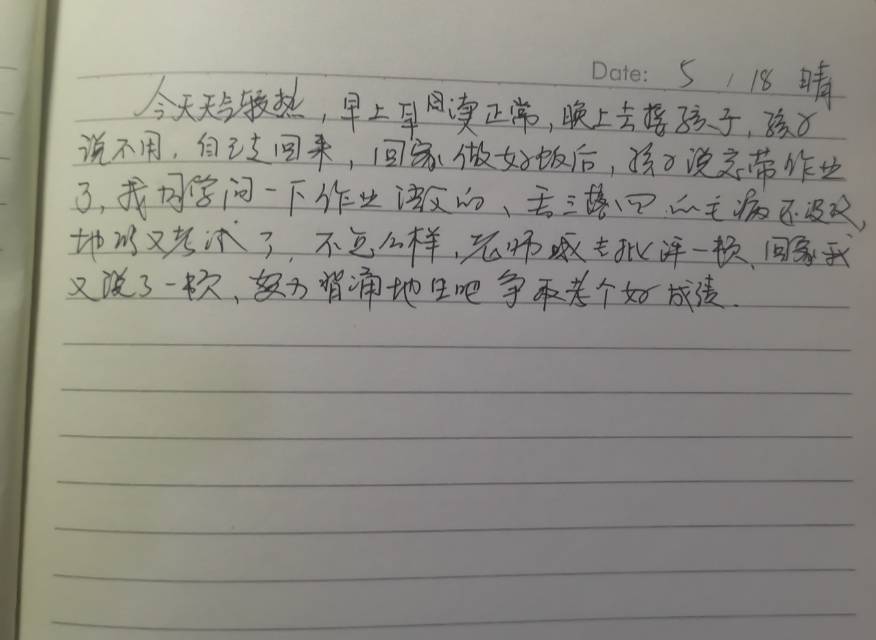 Date: 5 / 18 晴
今天天气较热，早上早阅读正常，晚上去接孩子，孩子
说不用，自己走回来，回家做好饭后，孩子说忘带作业
了，我同学问一下作业语文的、丢三落四的毛病还没改，
地的又考试了，不怎么样，老师喊去批评一顿、回家我
又说了一顿、努力背诵地生吧争取考个好成绩.